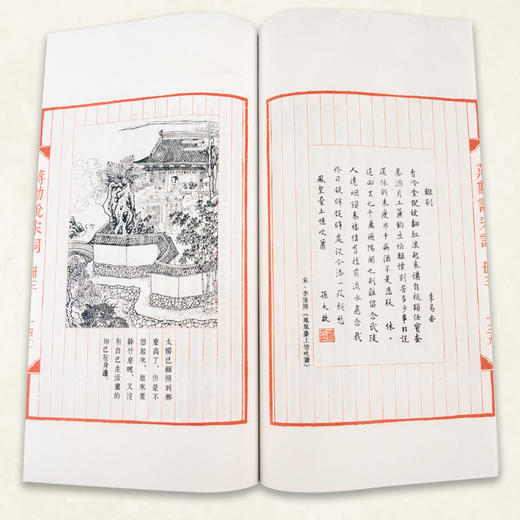 蔣勳說宋詞 冊三 一三九
離別
李易安
香冷金猊被翻紅浪起來慵自梳頭任寶奩
塵滿日上簾鉤生怕離懷別苦多少事欲說
還休新來瘦非干病酒不是悲秋 休、
這回去也千萬遍陽關也則難留念武陵
人遠烟鎖秦樓惟有樓前流水應念我
終日凝眸凝眸處從今添一段新愁
鳳凰臺上憶吹簫
宋·李清照《鳳凰臺上憶吹簫》
太陽已經照到那
麼高了，但是不
想起來，起來要
幹什麼呢，又沒
有自己生活裏的
知己在身邊。
蔣勳說宋詞 冊三 一四〇